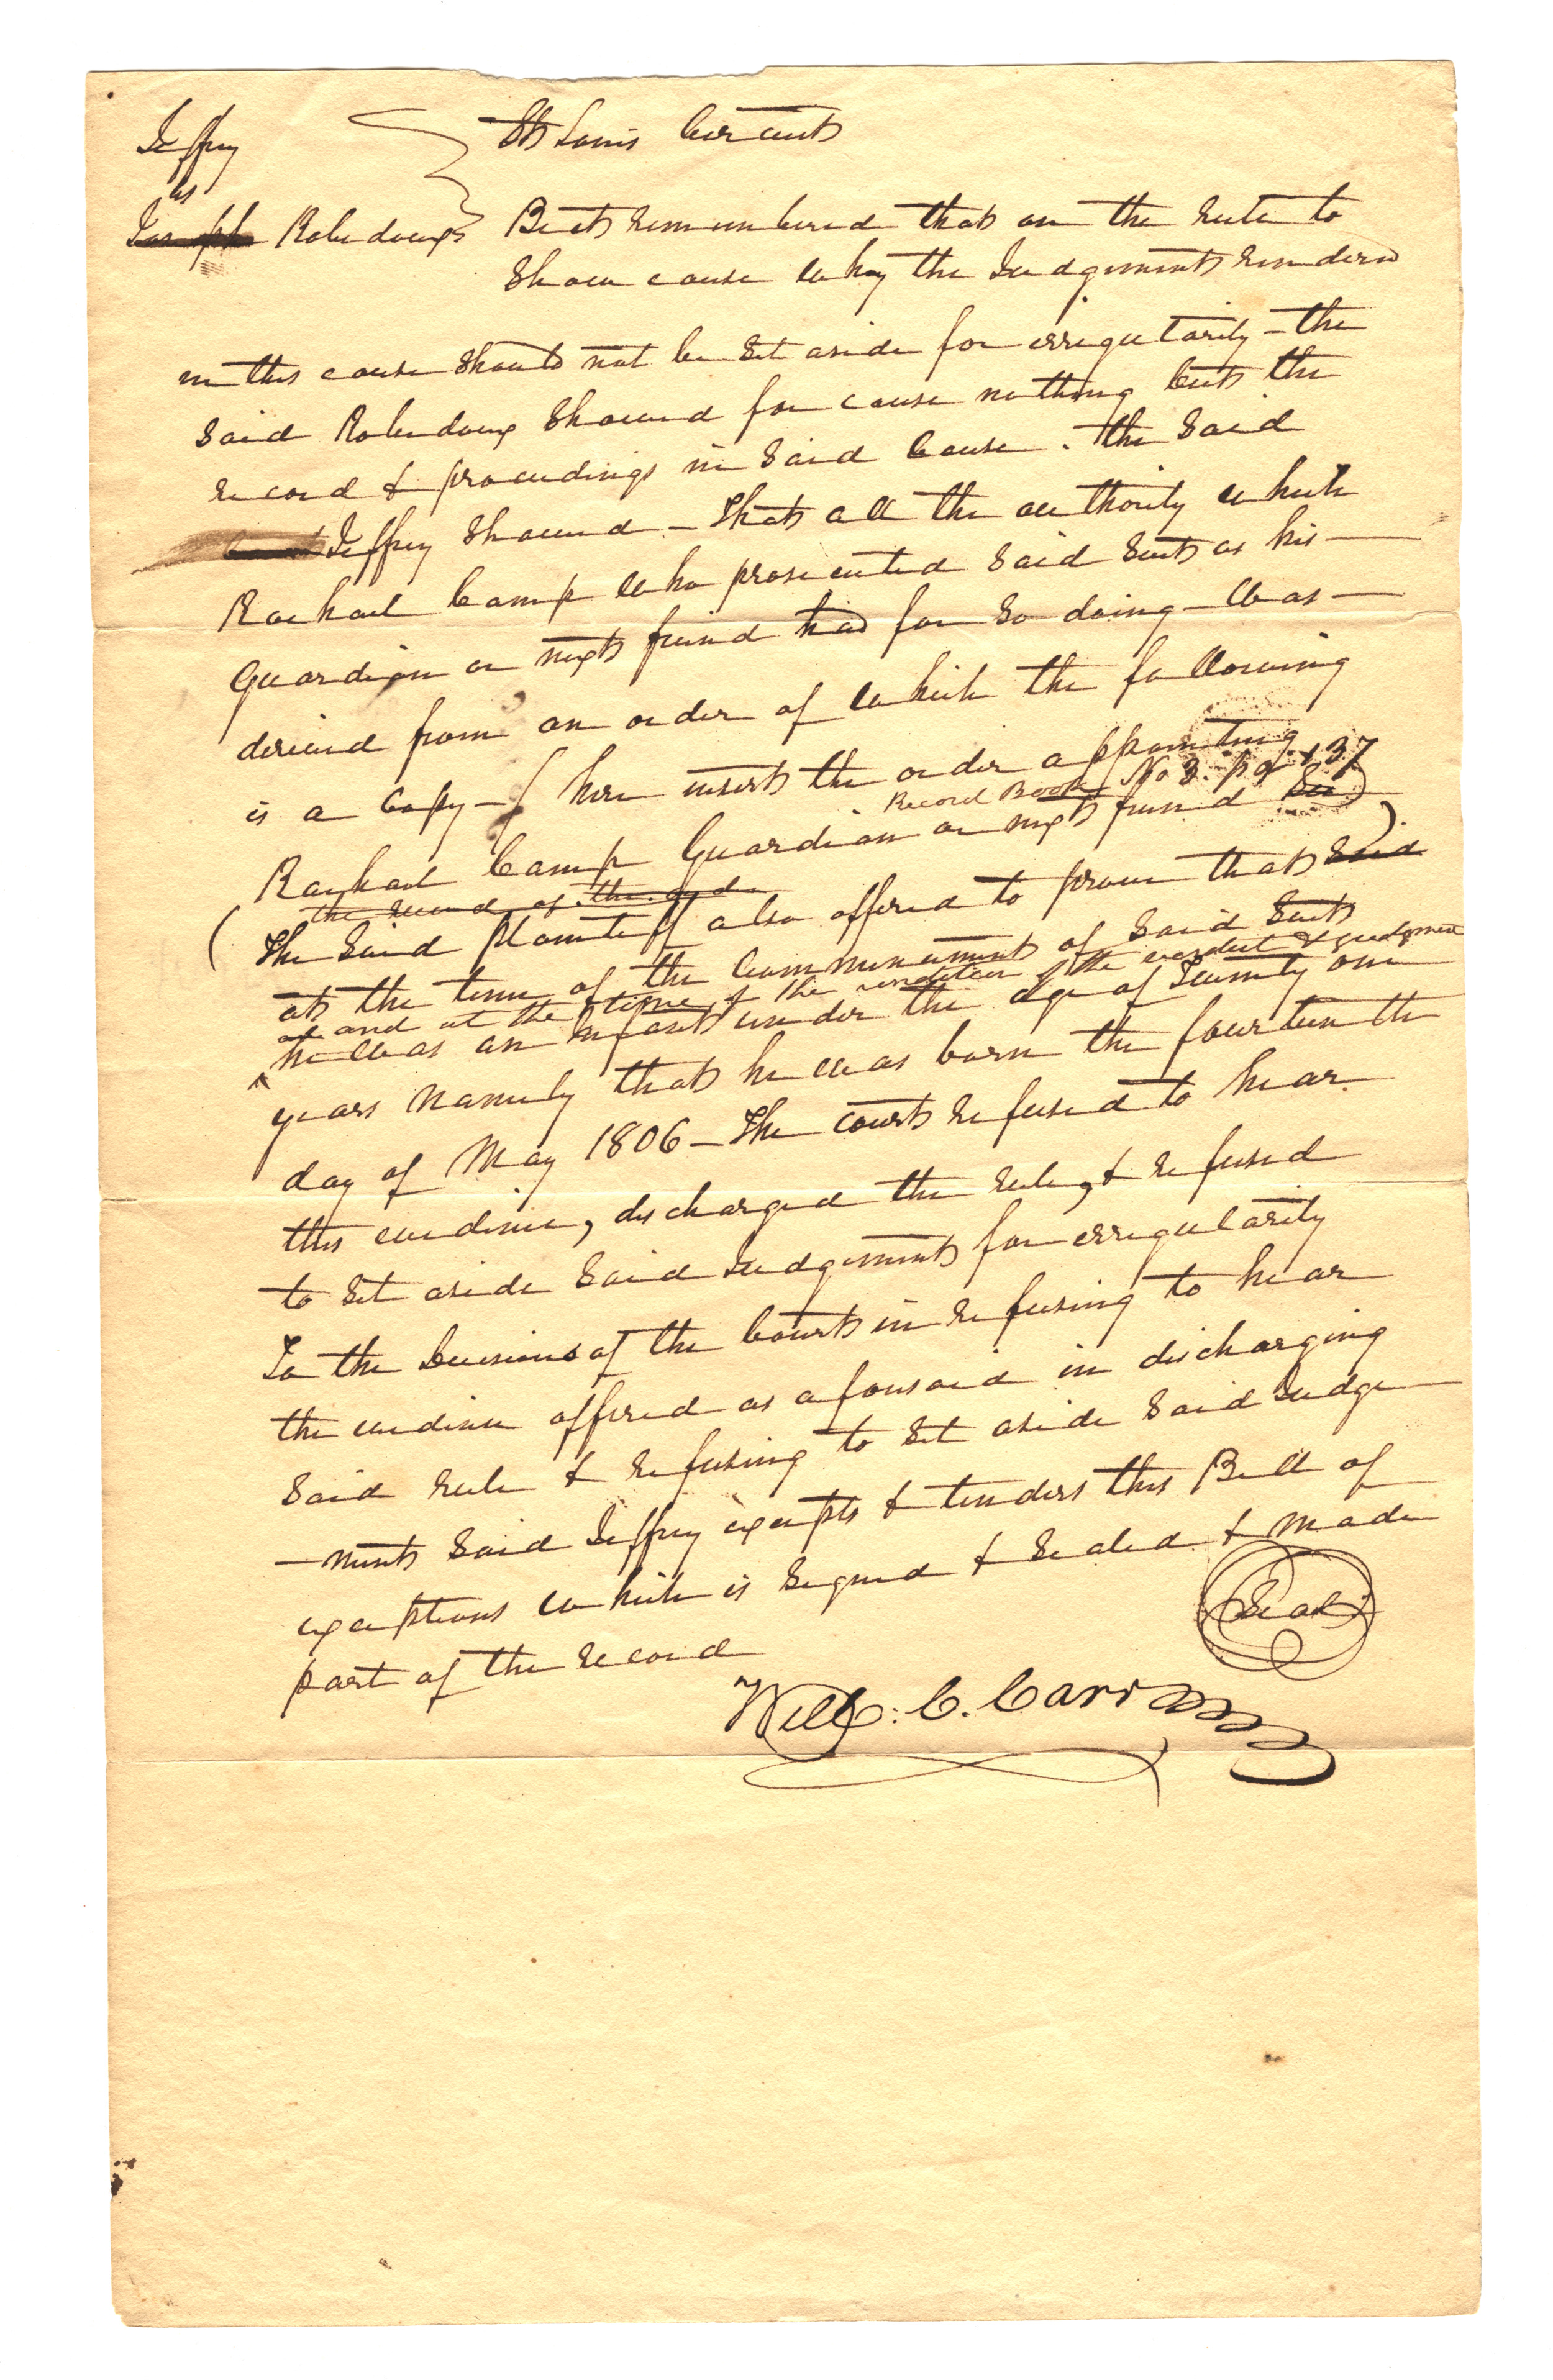 Jeffrey
vs
Joseph Robidoux
St Louis Circuit
Be it remembered that on the rule to
show cause why the Judgement renderd
in this cause should not be set aside for irregularity – the
said Robidoux showed for cause nothing but the
record & proceedings in said Cause. The said
Jeffrey showed – that all the authority which
Rachael Camp who prosecuted said suit as his
Guardian or next friend had for so doing – was
derived from an order of which the following
is a Copy – ( here insert the order appointing
Record Book No 3. pag 437
Rachael Camp Guardian or next friend
the record of the order
( The said plaintiff also offered to prove that said
at the time of the Commencement of said suit
and at the time of the rendition of the verdict & judgment
he was an Infant under the age of Twenty one
years namely that he was born the fourteenth
day of May 1806 – The court refused to hear
this evidence, discharged the rule, & refused
to set aside said Judgement for irregularity
To the decisions of the Court in refusing to hear
the evidence offered as aforesaid in discharging
said rule & refusing to set aside said Judge
–ment said Jeffrey excepts & tenders this Bill of
exceptions which is signed & sealed & made
part of the record
Seal
Will: C. Carr